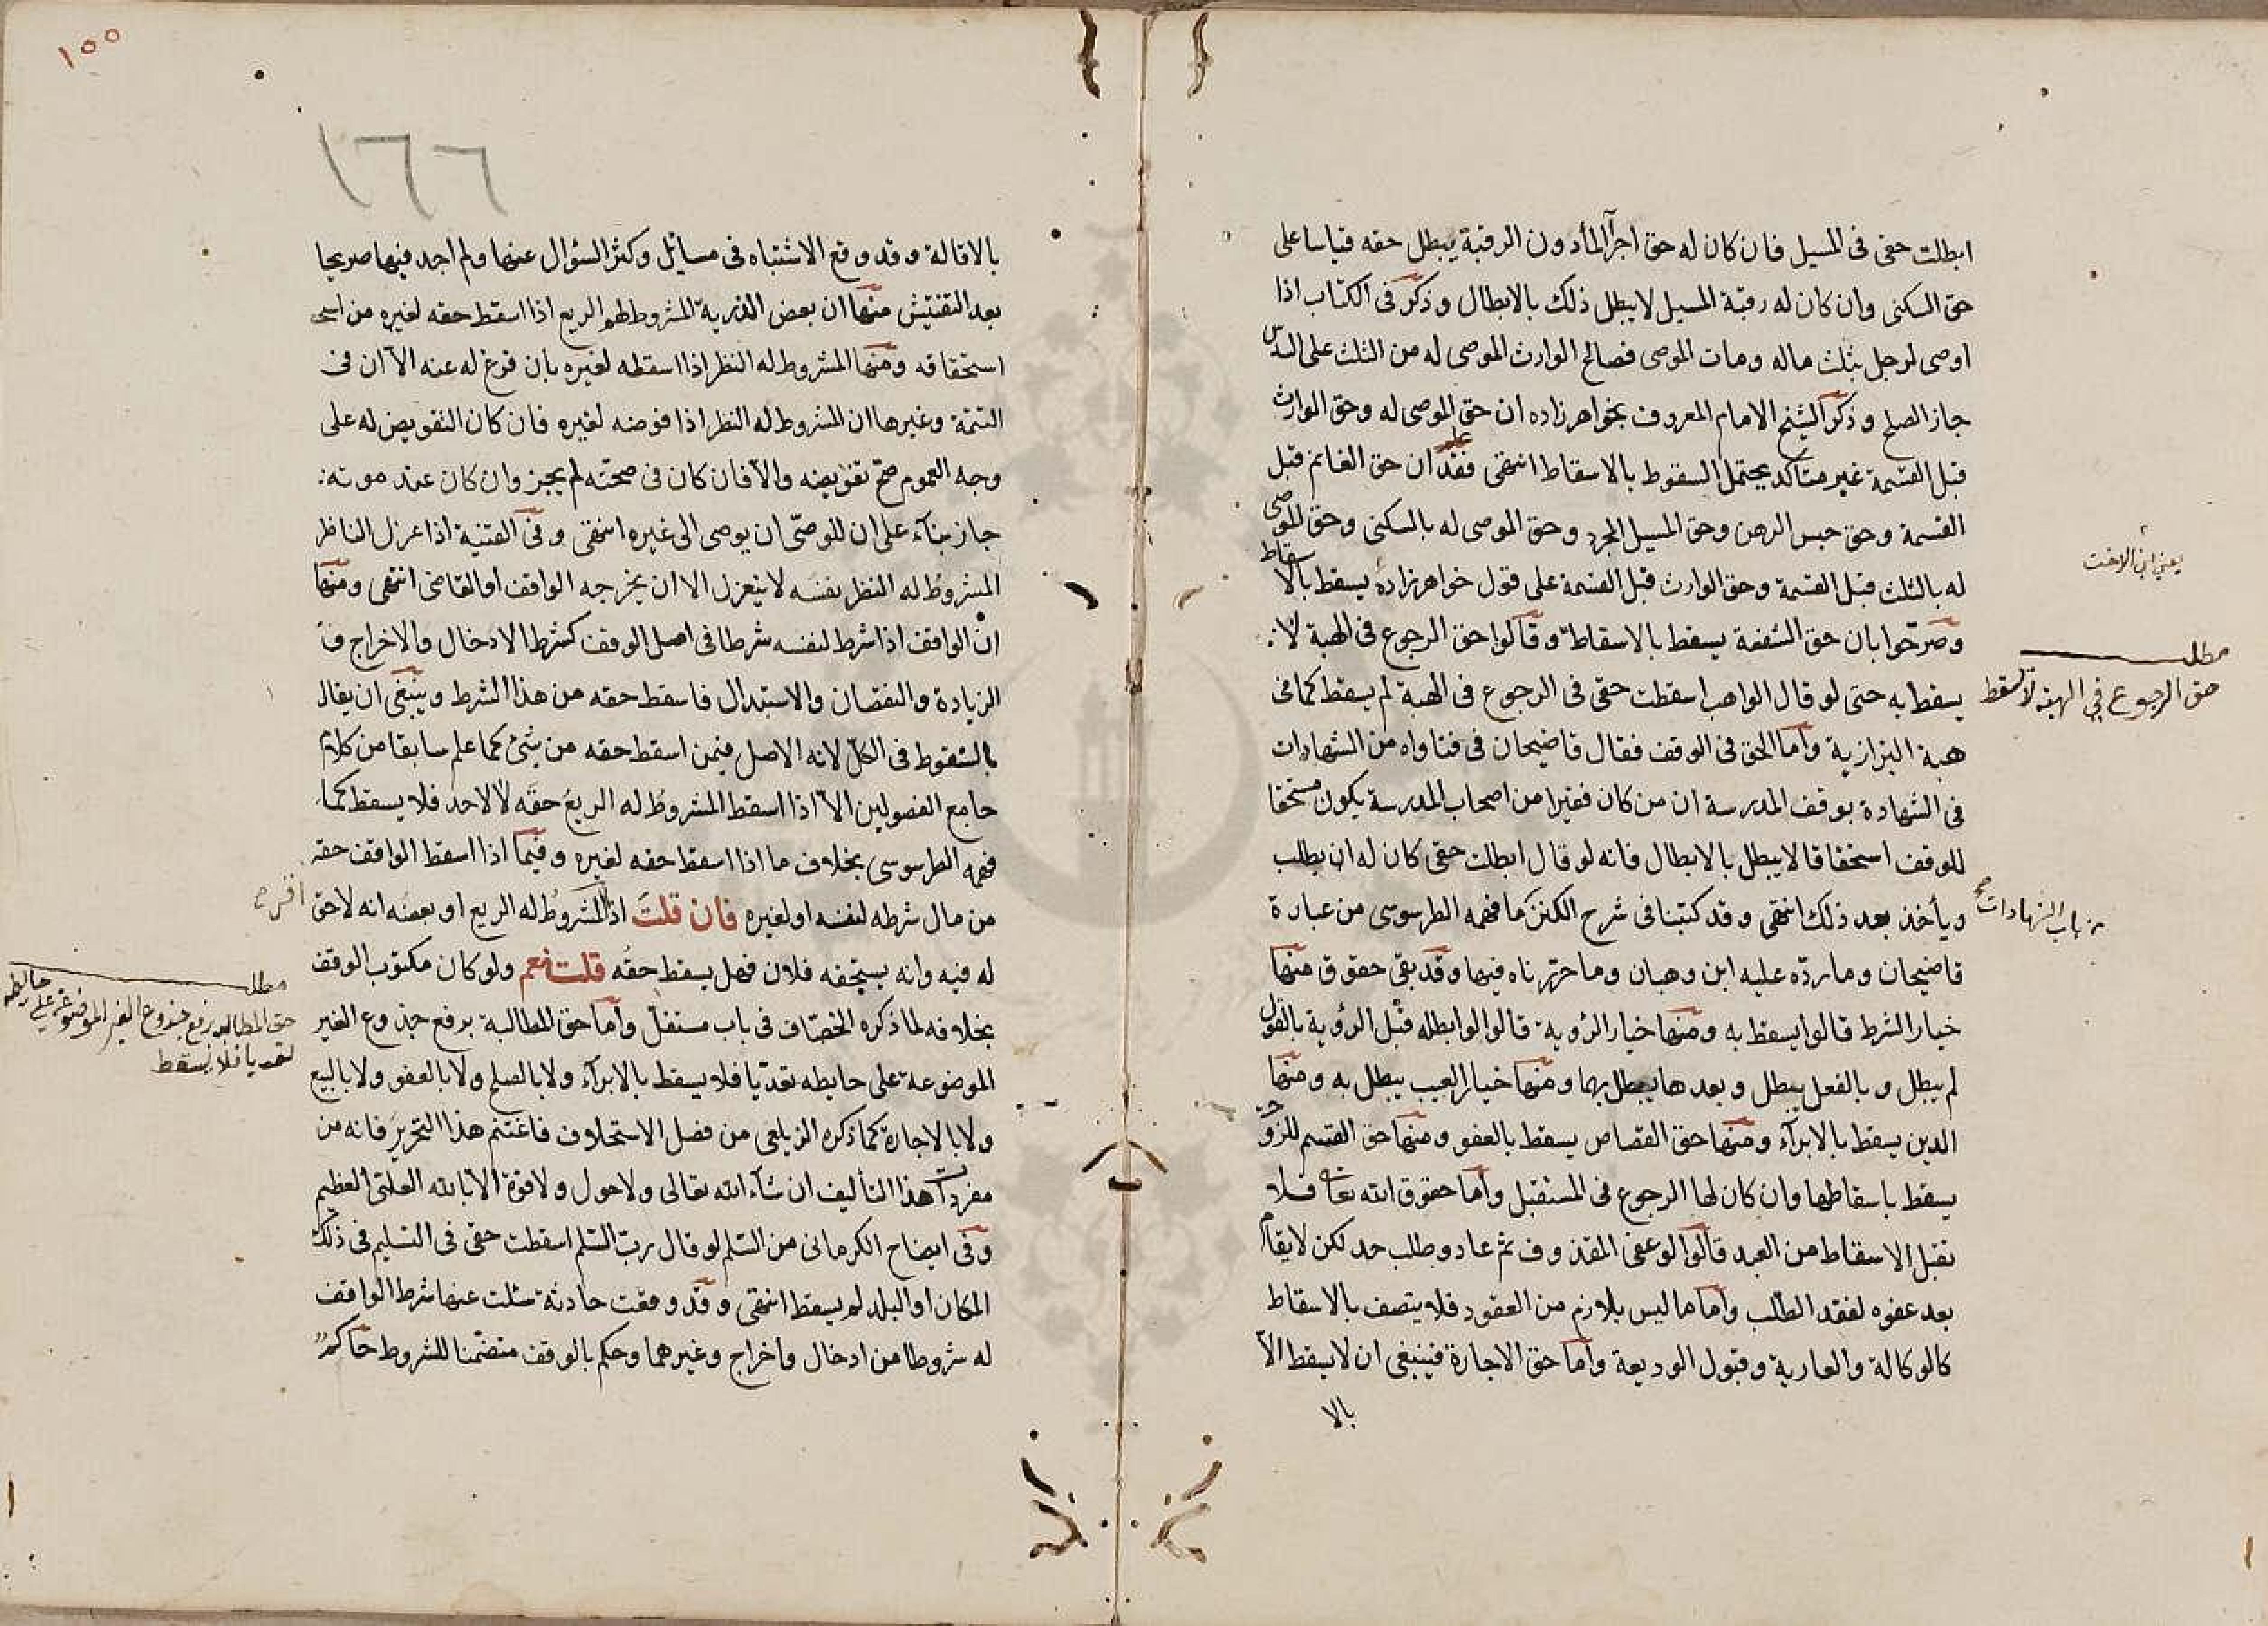 ابطلت حقى فى المسيل فان كان له حق اجرآ المأ دون الرقبة يبطل حقه قياسا على
حق السكنى وان كان له رقبة المسيل لا يبطل ذلك بالابطال وذكر فى الكتاب اذا
اوصى لرجل بثلث ماله ومات الموصى فصالح الوارث الموصى له من الثلث على السدس
جاز الصلح وذكر الشيخ الامام المعروف بخواهر زاده ان حق الموصى له وحق الوارث
قبل القسمة غير متاكد يحتمل السقوط بالاسقاط انتهى فقد علم ان حق الغانم قبل
القسمة وحق حبس الرهن وحق المسيل المجرد وحق الموصى له بالسكنى وحق الموصى
له بالثلث قبل القسمة وحق الوارث قبل القسمة على قول خواهر زاده يسقط بالاسقاط
يعنى ابن الاخت
وصرّحوا بان حق الشفعة يسقط بالاسقاط وقالوا حق الرجوع فى الهبة لا
مطلب
حق الرجوع في الهبة لا يسقط
يسقط به حتى لو قال الواهب اسقطت حقى فى الرجوع فى الهبة لم يسقط كما فى
هبة البزازية وأما الحق فى الوقف فقال قاضيخان فى فتاواه من الشهادات
فى الشهادة بوقف المدرسة ان من كان فقيرا من اصحاب المدرسة يكون مستحقا
للوقف استحقاقا لا يبطل بالابطال فانه لو قال ابطلت حقى كان له ان يطلب
ويأخذ بعد ذلك انتهى وقد كتبنا فى شرح الكنز ما فهمه الطرسوسى من عبارة
من باب الشهادات صح
قاضيخان وما ردّه عليه ابن وهبان وما حررناه فيها وقد بقى حقوق منها
خيار الشرط قالوا يسقط به ومنها خيار الرؤية قالوا لو ابطله قبل الرؤية بالقول
لم يبطل وبالفعل يبطل وبعدها يبطل بهما ومنها خيار العيب يبطل به ومنها
الدين يسقط بالابرآء ومنها حق القصاص يسقط بالعفو ومنها حق القسم للزوجة
يسقط باسقاطها وان كان لها الرجوع فى المستقبل وأما حقوق الله تعا فلا
تقبل الاسقاط من العبد قالوا لو عفى المقذوف ثم عاد وطلب حد لكن لا يقام
بعد عفوه لفقد الطلب وأما ما ليس بلازم من العقود فلا يتصف بالاسقاط
كالوكالة والعارية وقبول الوديعة وأما حق الاجارة فينبغى ان لا يسقط الا
بالا
١٥٥
١٦٦
بالاقالة وقد وقع الاشتباه فى مسائل وكثر السؤال عنها ولم اجد فيها صريحا
بعد التفتيش منها ان بعض الذرية المشروط لهم الريع اذا اسقط حقه لغيره من
استحقاقه ومنها المشروط له النظر اذا اسقطه لغيره بان فرغ له عنه الا ان فى
التتمة وغيرها ان المشروط له النظر اذا فوضه لغيره فان كان التفويض له على
وجه العموم صح تفويضه والّا فان كان فى صحته لم يجز وان كان عند موته
جاز بنآء على ان للوصىّ ان يوصى الى غيره انتهى وفى القنية اذا عزل الناظر
المشروط له النظر نفسه لا ينعزل الا ان يخرجه الواقف او القاضى انتهى ومنها
ان الواقف اذا شرط لنفسه شرطا فى اصل الوقف كشرط الادخال والاخراج و
الزيادة والنقصان والاستبدال فاسقط حقه من هذا الشرط وينبغى ان يقال
بالسقوط فى الكلّ لانه الاصل فيمن اسقط حقه من شئ كما علم سابقا من كلام
جامع الفصولين الا اذا اسقط المشروط له الريع حقه لا لاحد فلا يسقط كما
فهمه الطرسوسى بخلاف ما اذا اسقط حقه لغيره وفيما اذا اسقط الواقف حقه
من مال شرطه لنفسه او لغيره فان قلت اذا اقر المشروط له الريع او بعضه انه لا حق
له فيه وانه يستحقه فلان فهل يسقط حقه قلت نعم ولو كان مكتوب الوقف
بخلافه لما ذكره الخصّاف فى باب مستقل وأما حق المطالبة برفع جذوع الغير
مطلب
حق المطالبه برفع جذوع الغير الموضوعة على حايطه
تعديا فلا يسقط
الموضوعة على حايطه تعدّيا فلا يسقط بالابرآء ولا بالصلح ولا بالعفو ولا بالبيع
ولا بالاجارة كما ذكره الزيلعى من فصل الاستحلاف فاغتنم هذا التحرير فانه من
مفردات هذا التأليف ان شآء الله تعالى ولا حول ولا قوة الا بالله العلىّ العظيم
وفى ايضاح الكرمانى من السلم لو قال ربّ السلم اسقطت حقى فى التسليم فى ذلك
المكان او البلد لم يسقط انتهى وقد وقعت حادثة سئلت عنها شرط الواقف
له شروطا من ادخال واخراج وغيرهما وحكم بالوقف متضمّنا للشروط حاكم